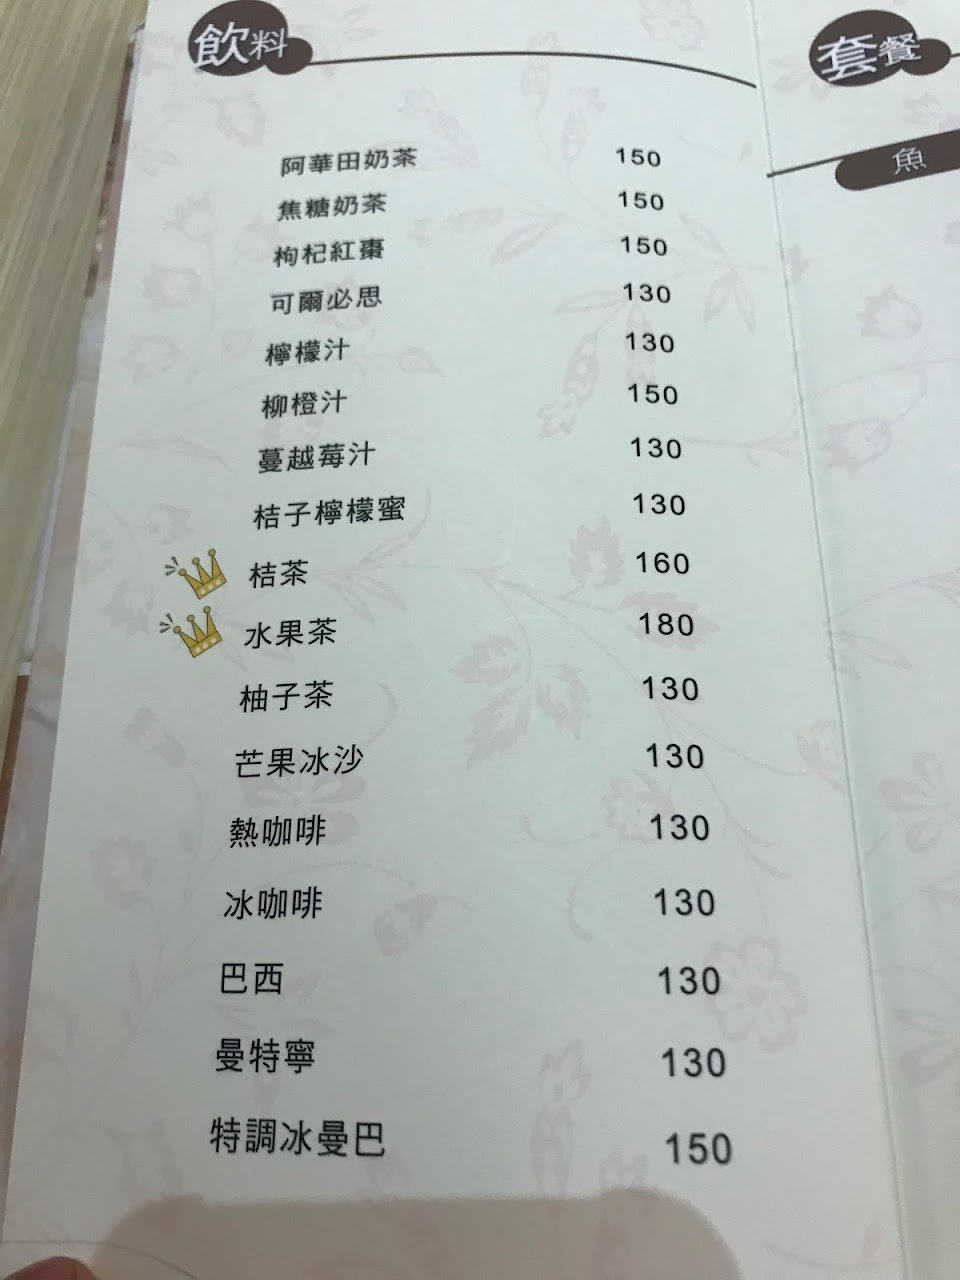 飲料
阿華田奶茶 150
焦糖奶茶 150
枸杞紅棗 150
可爾必思 130
檸檬汁 130
柳橙汁 150
蔓越莓汁 130
桔子檸檬蜜 130
桔茶 160
水果茶 180
柚子茶 130
芒果冰沙 130
熱咖啡 130
冰咖啡 130
巴西 130
曼特寧 130
特調冰曼巴 150
套餐
魚